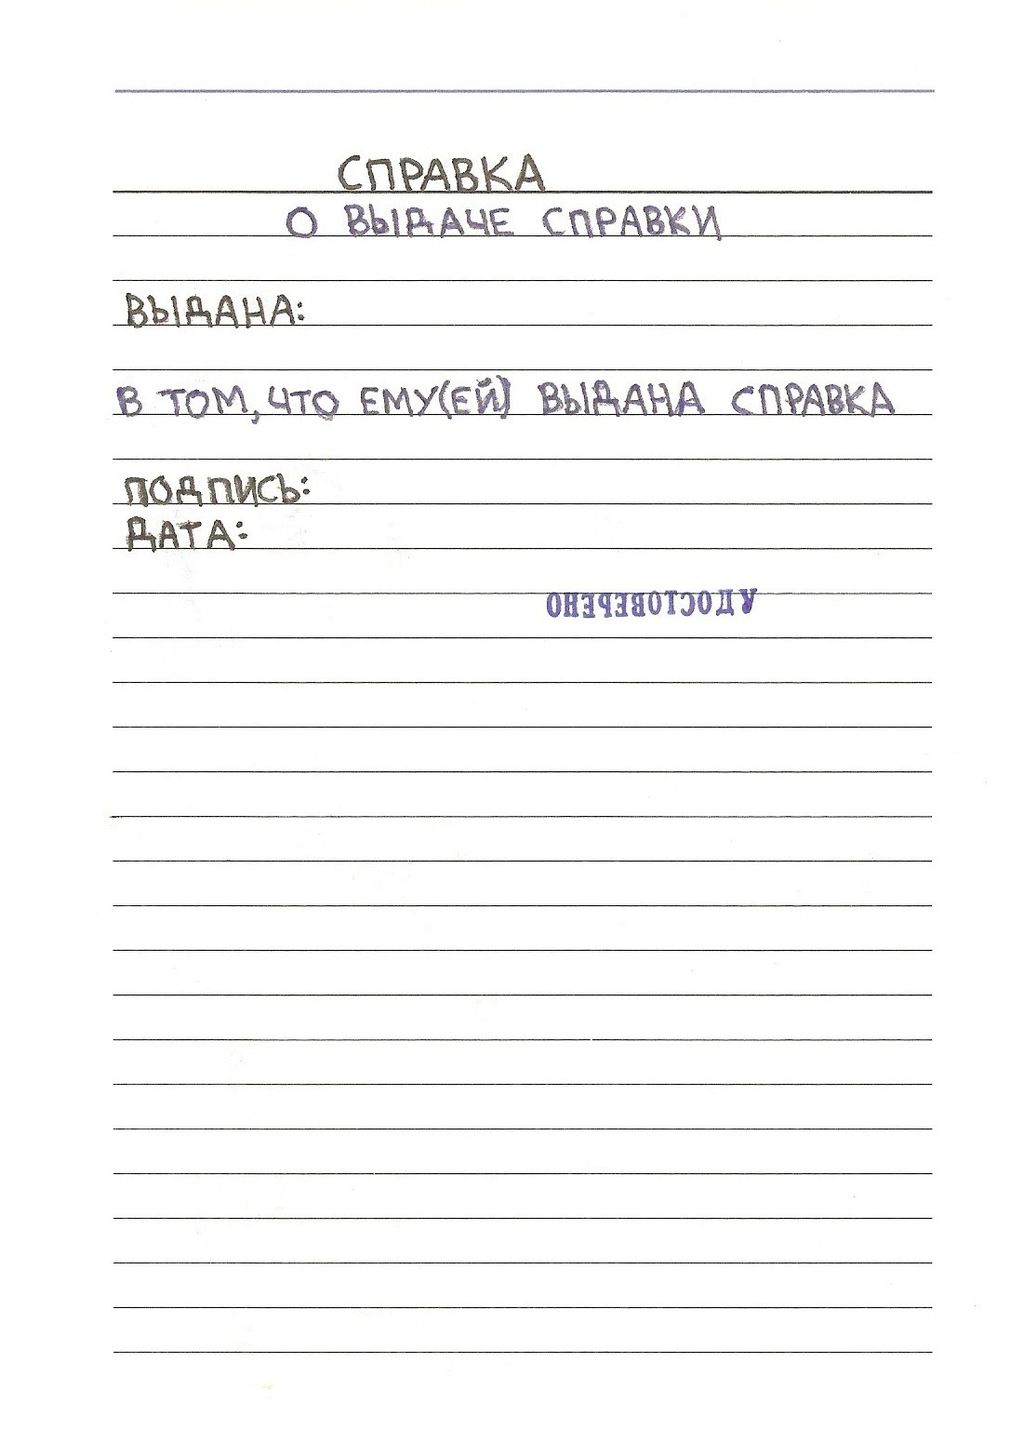 СПРАВКА
О ВЫДАЧЕ СПРАВКИ
ВЫДАНА:
В ТОМ, ЧТО ЕМУ(ЕЙ) ВЫДАНА СПРАВКА
ПОДПИСЬ:
ДАТА:
УДОСТОВЕРЕНО